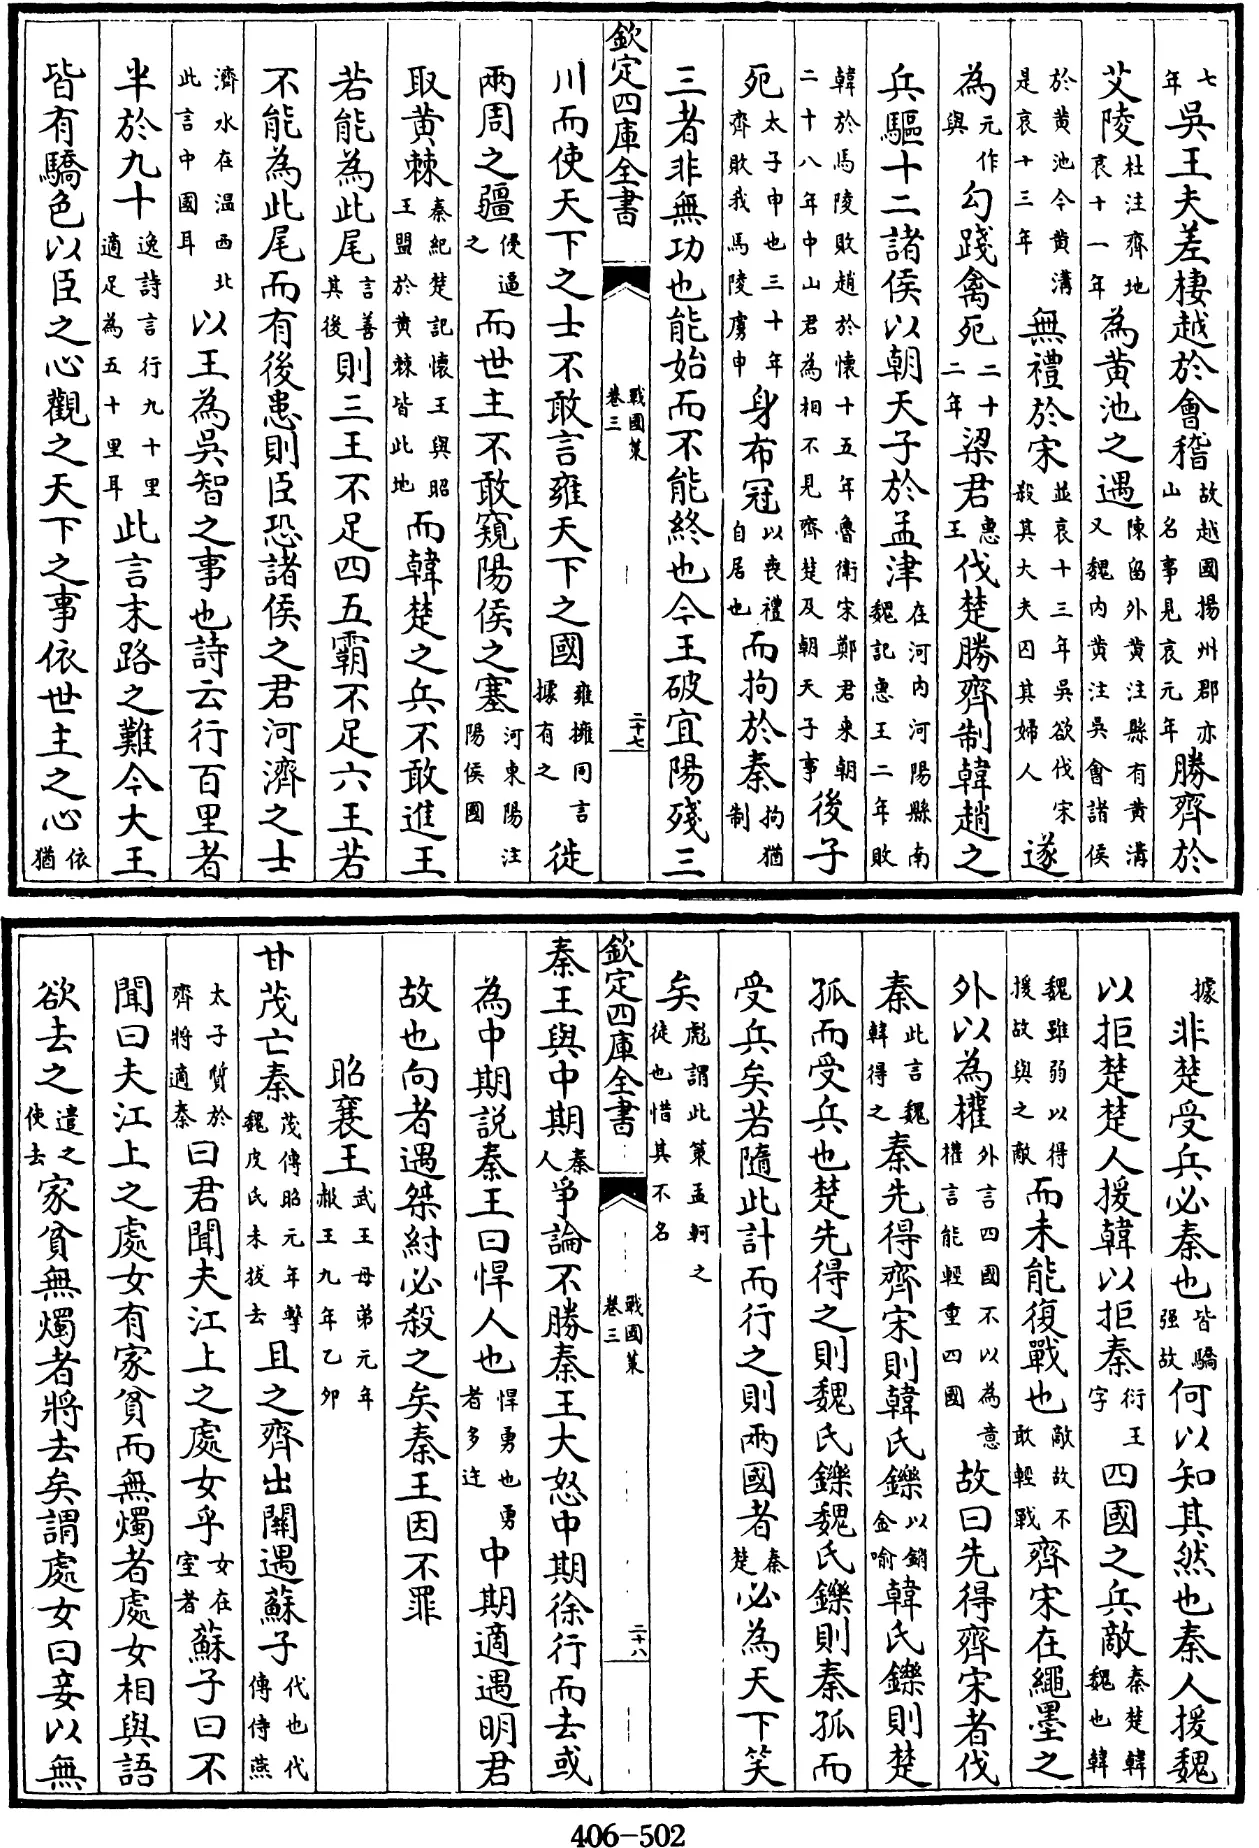 七年吳王夫差棲越於會稽故越國揚州郡亦山名事見哀元年勝齊於
艾陵杜注齊地哀十一年為黄池之遇陳留外黄注縣有黄溝又魏内黄注吳會諸侯
於黄池今黄溝是哀十三年無禮於宋並哀十三年吳欲伐宋殺其大夫囚其婦人遂
為元作與勾踐禽死二十二年梁君惠王伐楚勝齊制韓趙之
兵驅十二諸侯以朝天子於孟津在河内河陽縣南魏記惠王二年敗
韓於馬陵敗趙於懷十五年魯衛宋鄭君來朝二十八年中山君為相不見齊楚及朝天子事後子
死太子申也三十年齊敗我馬陵虜申身布冠以喪禮自居也而拘於秦拘猶制
三者非無功也能始而不能終也今王破宜陽殘三
欽定四庫全書 戰國策卷三 二十七
川而使天下之士不敢言雍天下之國雍擁同言據有之徙
兩周之疆侵逼之而世主不敢窺陽侯之塞河東陽注陽侯國
取黄棘秦紀楚記懷王與昭王盟於黄棘皆此地而韓楚之兵不敢進王
若能為此尾言善其後則三王不足四五霸不足六王若
不能為此尾而有後患則臣恐諸侯之君河濟之士
濟水在温西北此言中國耳以王為吳智之事也詩云行百里者
半於九十逸詩言行九十里適足為五十里耳此言末路之難今大王
皆有驕色以臣之心觀之天下之事依世主之心依猶
據非楚受兵必秦也皆驕强故何以知其然也秦人援魏
以拒楚楚人援韓以拒秦衍王字四國之兵敵秦楚韓魏也韓
魏雖弱以得援故與之敵而未能復戰也敵故不敢輕戰齊宋在繩墨之
外以為權外言四國不以為意權言能輕重四國故曰先得齊宋者伐
秦此言魏韓得之秦先得齊宋則韓氏鑠以銷金喻韓氏鑠則楚
孤而受兵也楚先得之則魏氏鑠魏氏鑠則秦孤而
受兵矣若隨此計而行之則兩國者秦楚必為天下笑
矣彪謂此策孟軻之徒也惜其不名
欽定四庫全書 戰國策卷三 二十八
秦王與中期秦人爭論不勝秦王大怒中期徐行而去或
為中期說秦王曰悍人也悍勇也勇者多迕中期適遇明君
故也向者遇桀紂必殺之矣秦王因不罪
昭襄王武王母弟元年赧王九年乙卯
甘茂亡秦茂傳昭元年擊魏皮氏未拔去且之齊出關遇蘇子代也代傳侍燕
太子質於齊將適秦曰君聞夫江上之處女乎女在室者蘇子曰不
聞曰夫江上之處女有家貧而無燭者處女相與語
欲去之遣之使去家貧無燭者將去矣謂處女曰妾以無
406-502